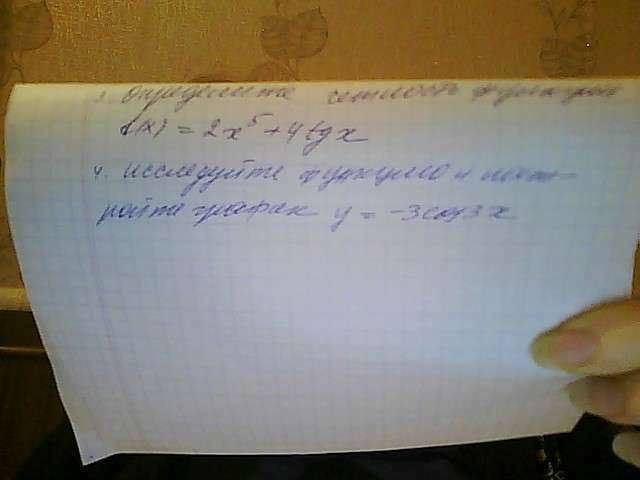 3. Определите четность функции
f(x) = 2x⁵ + 4tgx
4. исследуйте функцию и пост-
ройте график y = -3cos3x